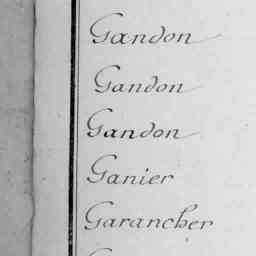 Gandon
Gandon
Gandon
Ganier
Garancher